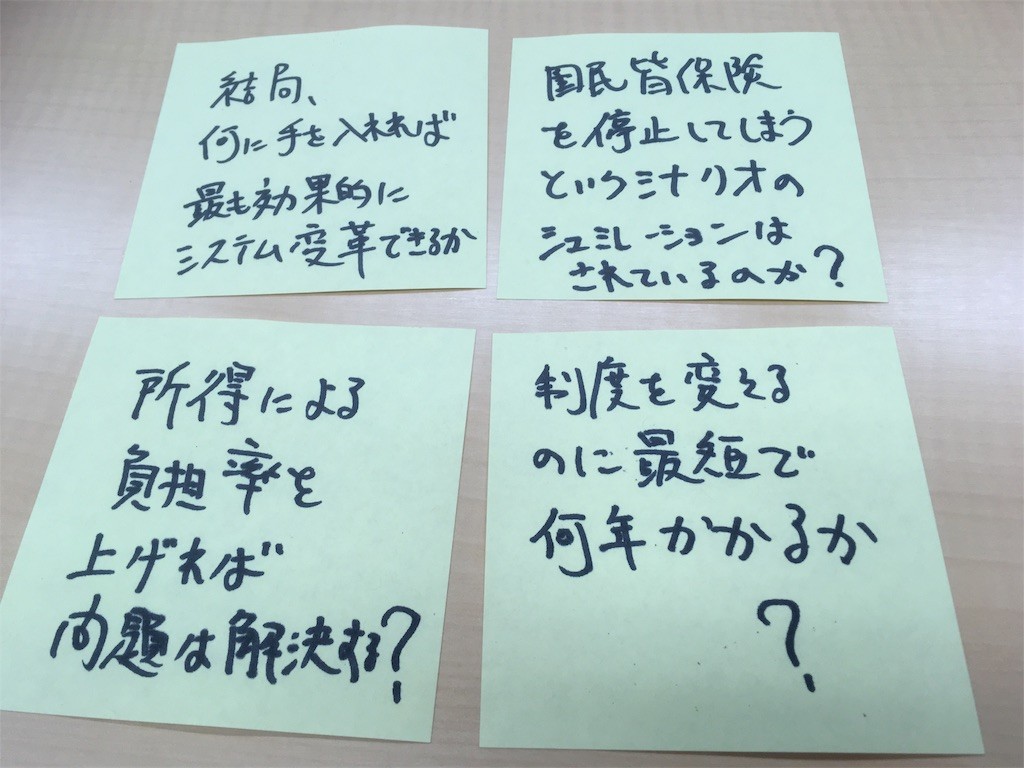 結局、
何に手を入れれば
最も効果的に
システム変革できるか
国民皆保険
を停止してしまう
というシナリオの
シュミレーションは
されているのか?
所得による
負担率を
上げれば
問題は解決する?
制度を変える
のに最短で
何年かかるか
?